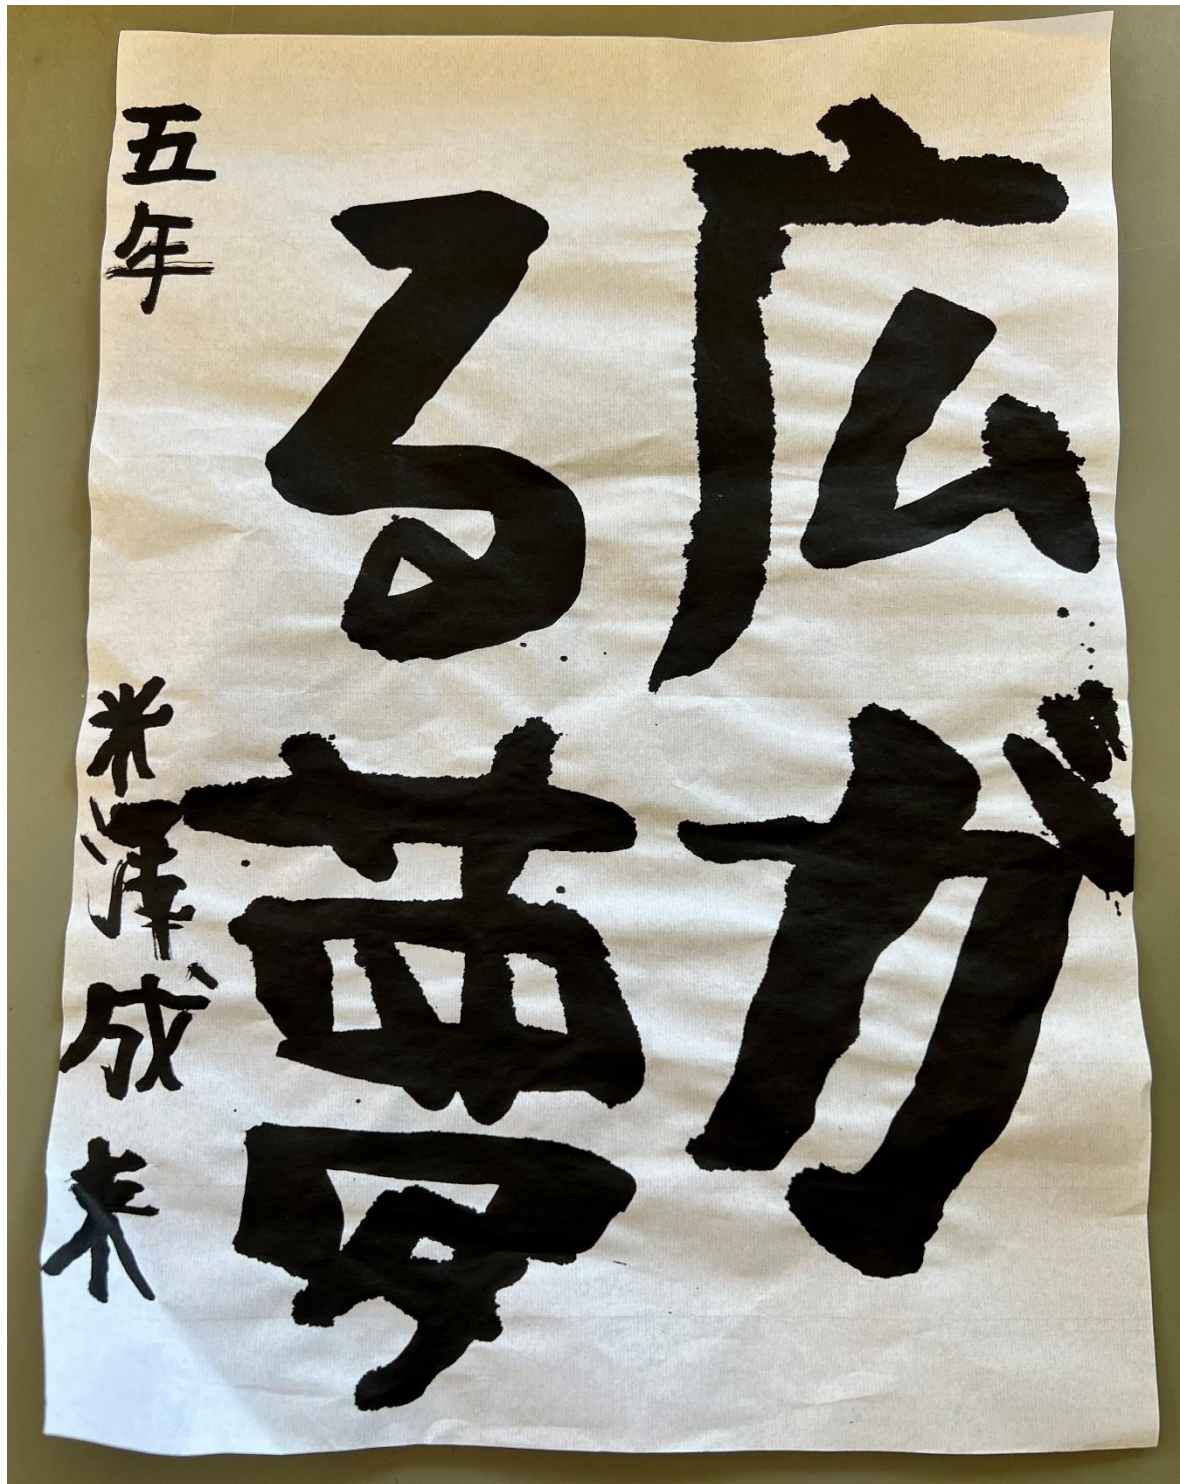 広が
る夢
五年 米澤成来